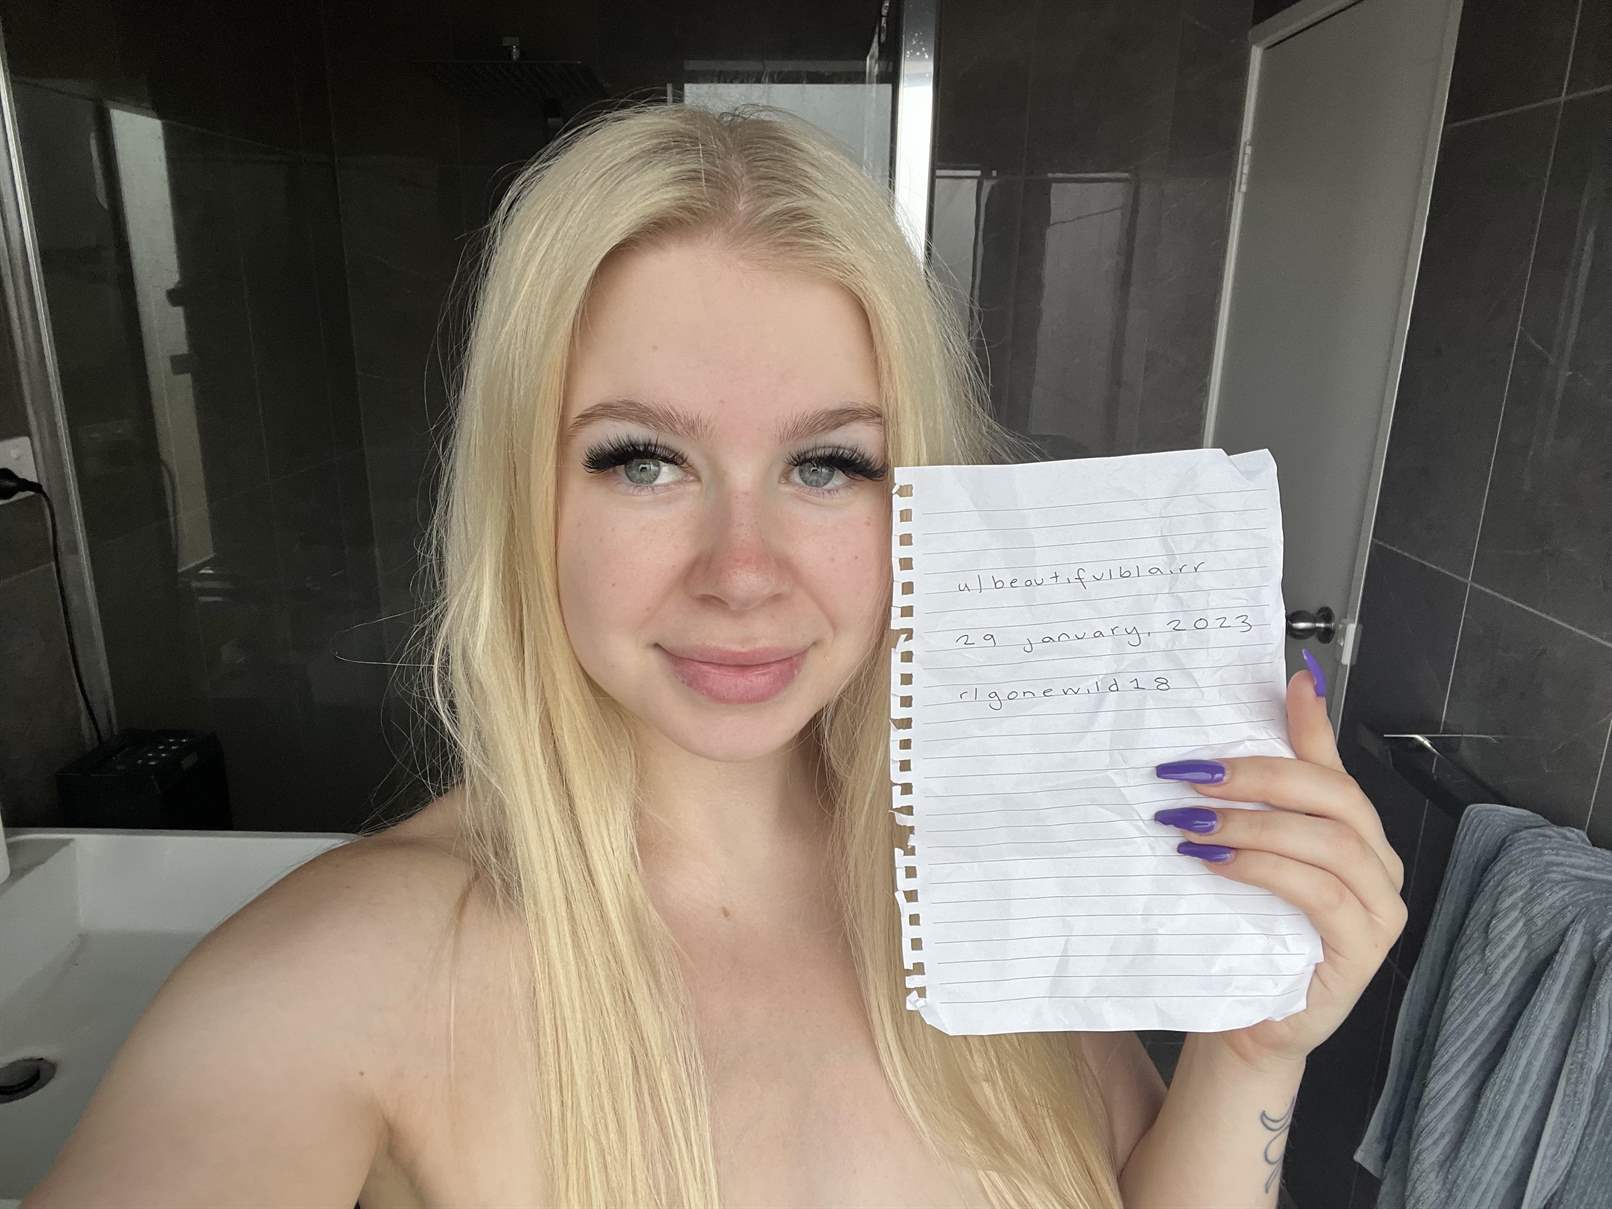 u/beautifulblairr
29 january, 2023
r/gonewild18